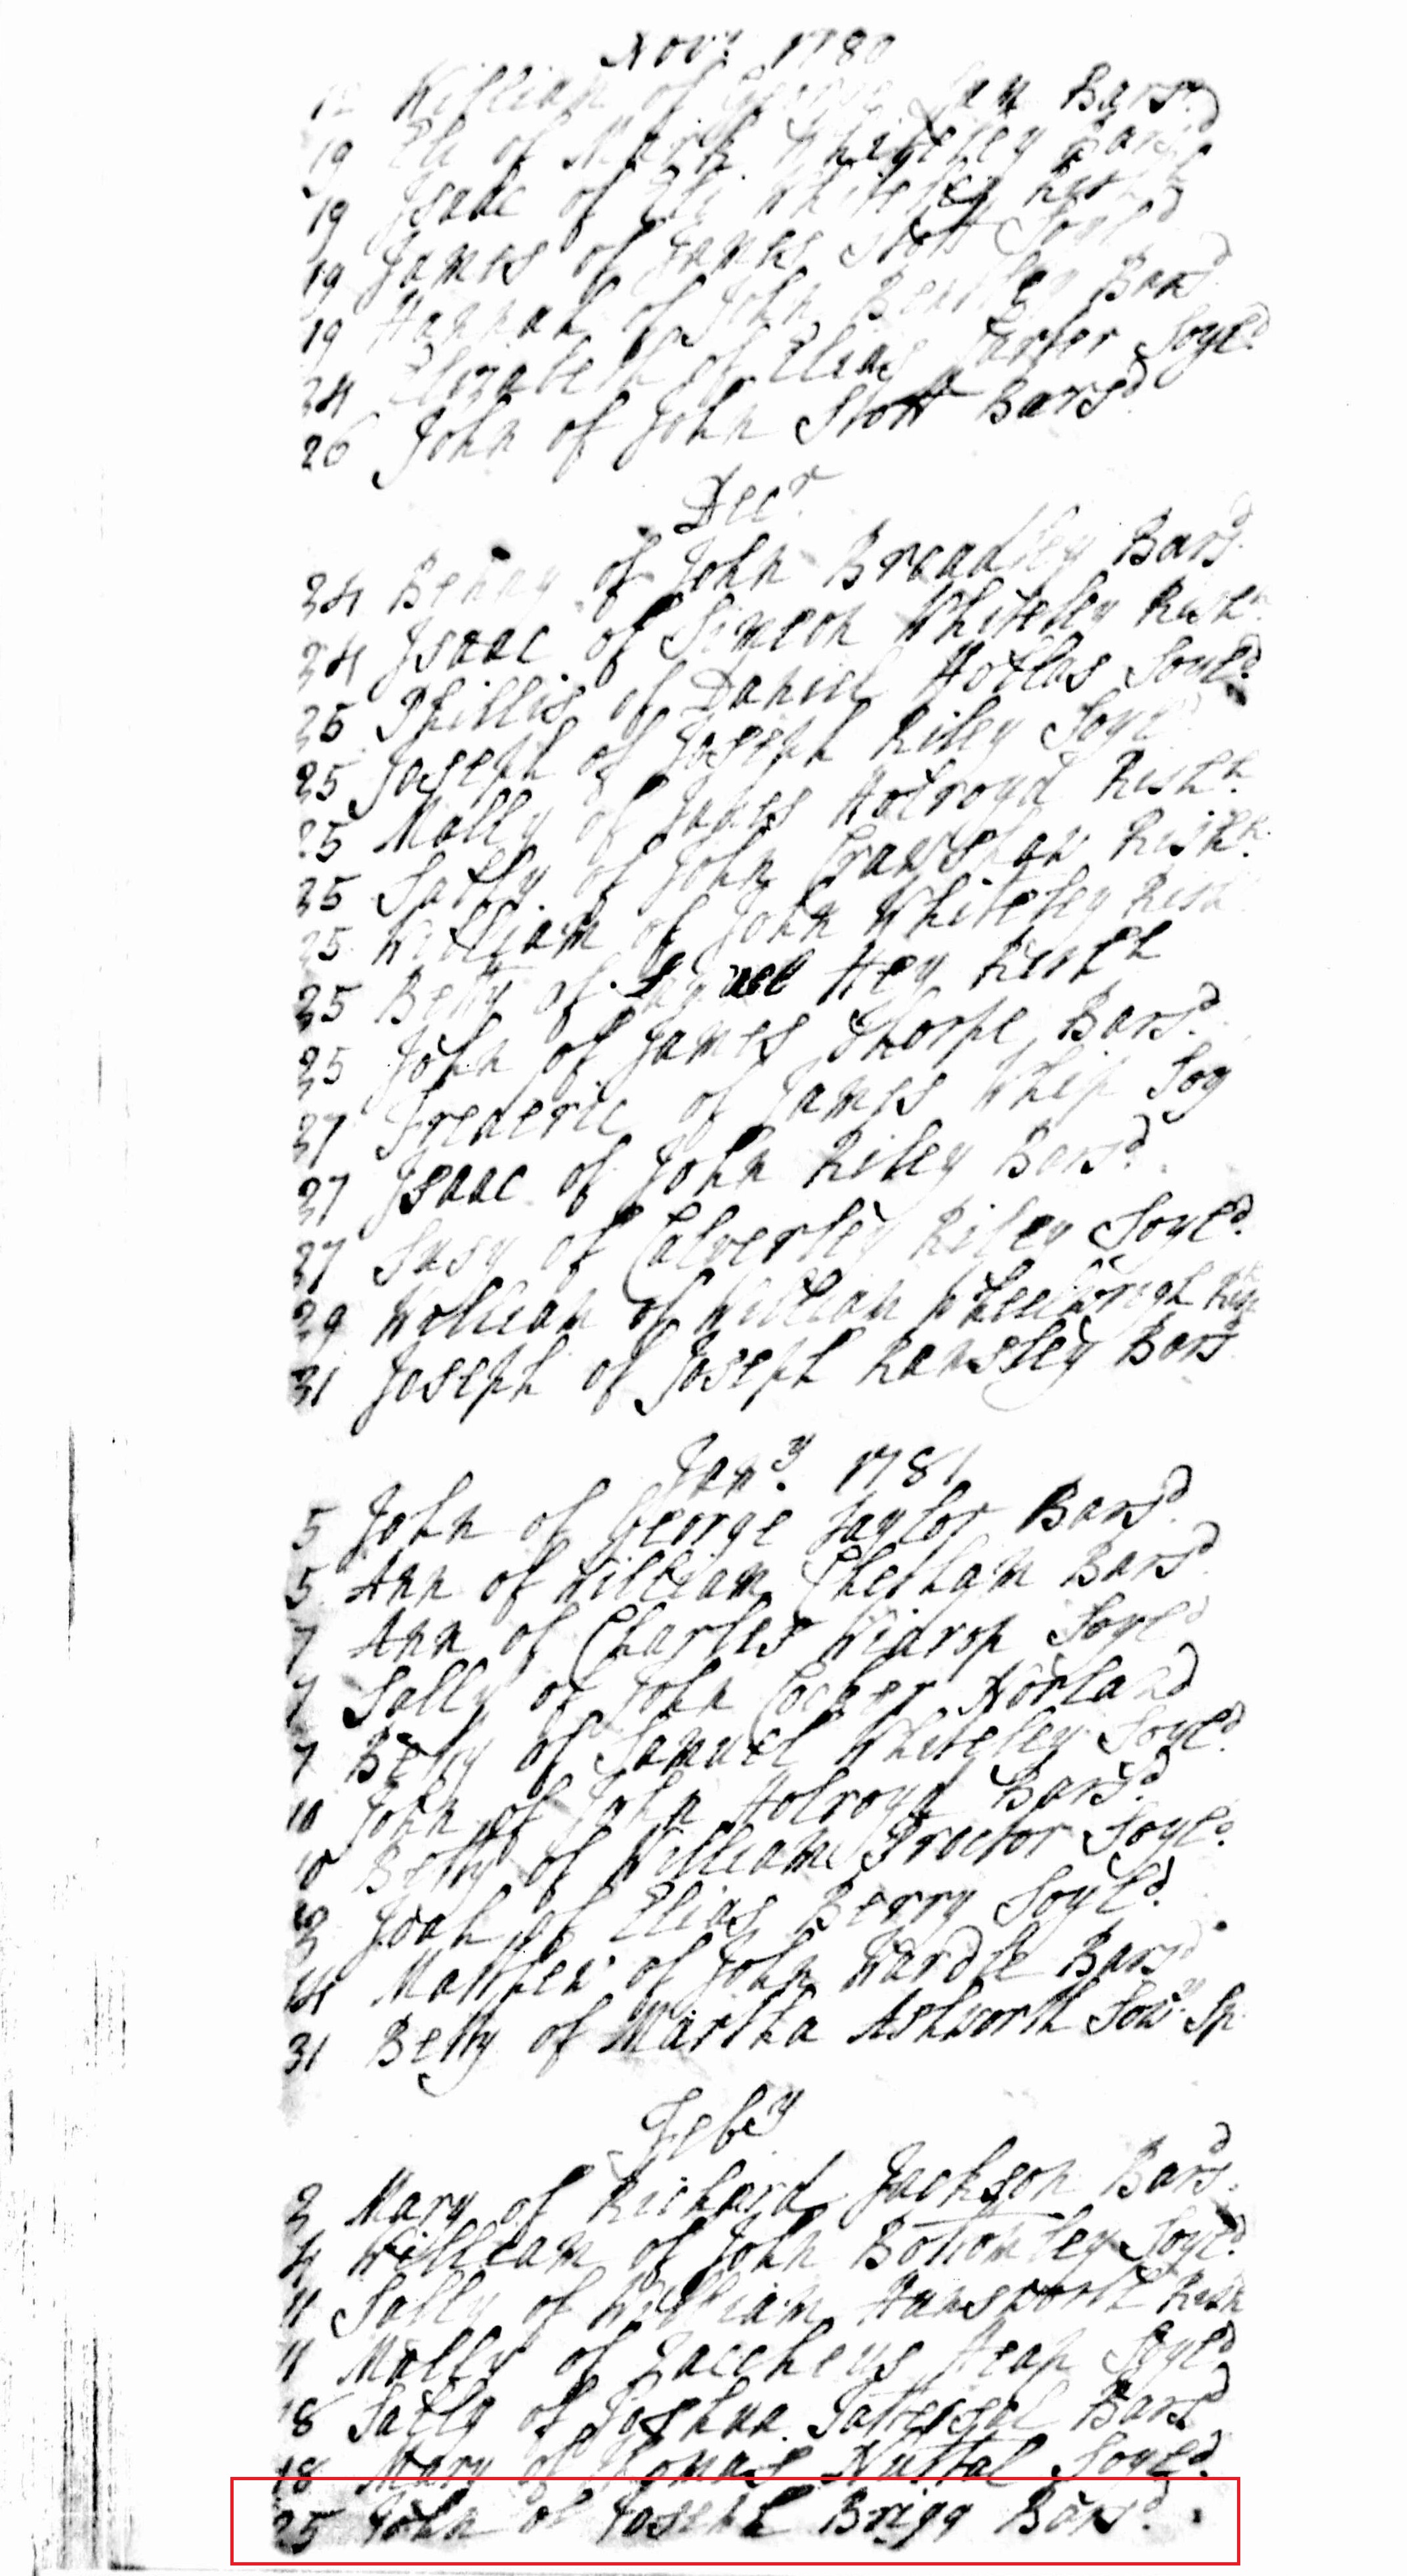 Novr 1780
12 William of George Barsd
19 Eli of Mark Whiteley Barsd
19 Isaac of Eli Whiteley Rish
19 James of James Stott Soyld
19 Hannah of John Bentley Barsd
24 Elizabeth of Elias Farfer Soyld.
26 John of John Stott Barsd
Decr
24 Benny of John Broadley Barsd.
24 Isaac of Simeon Whiteley Rishh.
25 Phillis of Daniel Hollas Soyld.
25 Joseph of Joseph Riley Soyld
25 Molly of James Holroyd Rishh.
25 Sally of John Crawshaw Rishh.
25 William of John Whiteley Rish
25 Betty of Hey Rishh
25 John of James Thorpe Barsd.
27 Frederic of James Whip Soy
27 Isaac of John Riley Barsd.
27 Susy of Calverley Riley Soyld.
29 William of William
31 Joseph of Joseph Ramsley Bars
Jany. 1781
5 John of George Taylor Barsd.
5 Ann of William Cheetham Barsd
7 Ann of Charles Widdop Soyld
7 Sally of John Cocker Norland
7 Betty of Samuel Whiteley Soyld.
10 John of John Holroyd Barsd.
10 Betty of William Proctor Soyld.
Joah of Elias Berry Soyld.
14 Matthew of John Wardle Barsd
31 Betty of Martha Ashworth Sowy Sp
Feby
2 Mary of Richard Jackson Barsd.
4 William of John Bottomley Soyld.
11 Sally of William Hansworth Rish
11 Molly of Zaccheus Heap Soyld
18 Sally of Joshua Tattersal Barsd
18 Mary of Thomas Nuttal Soyld.
25 John of Joseph Brigg Barsd.